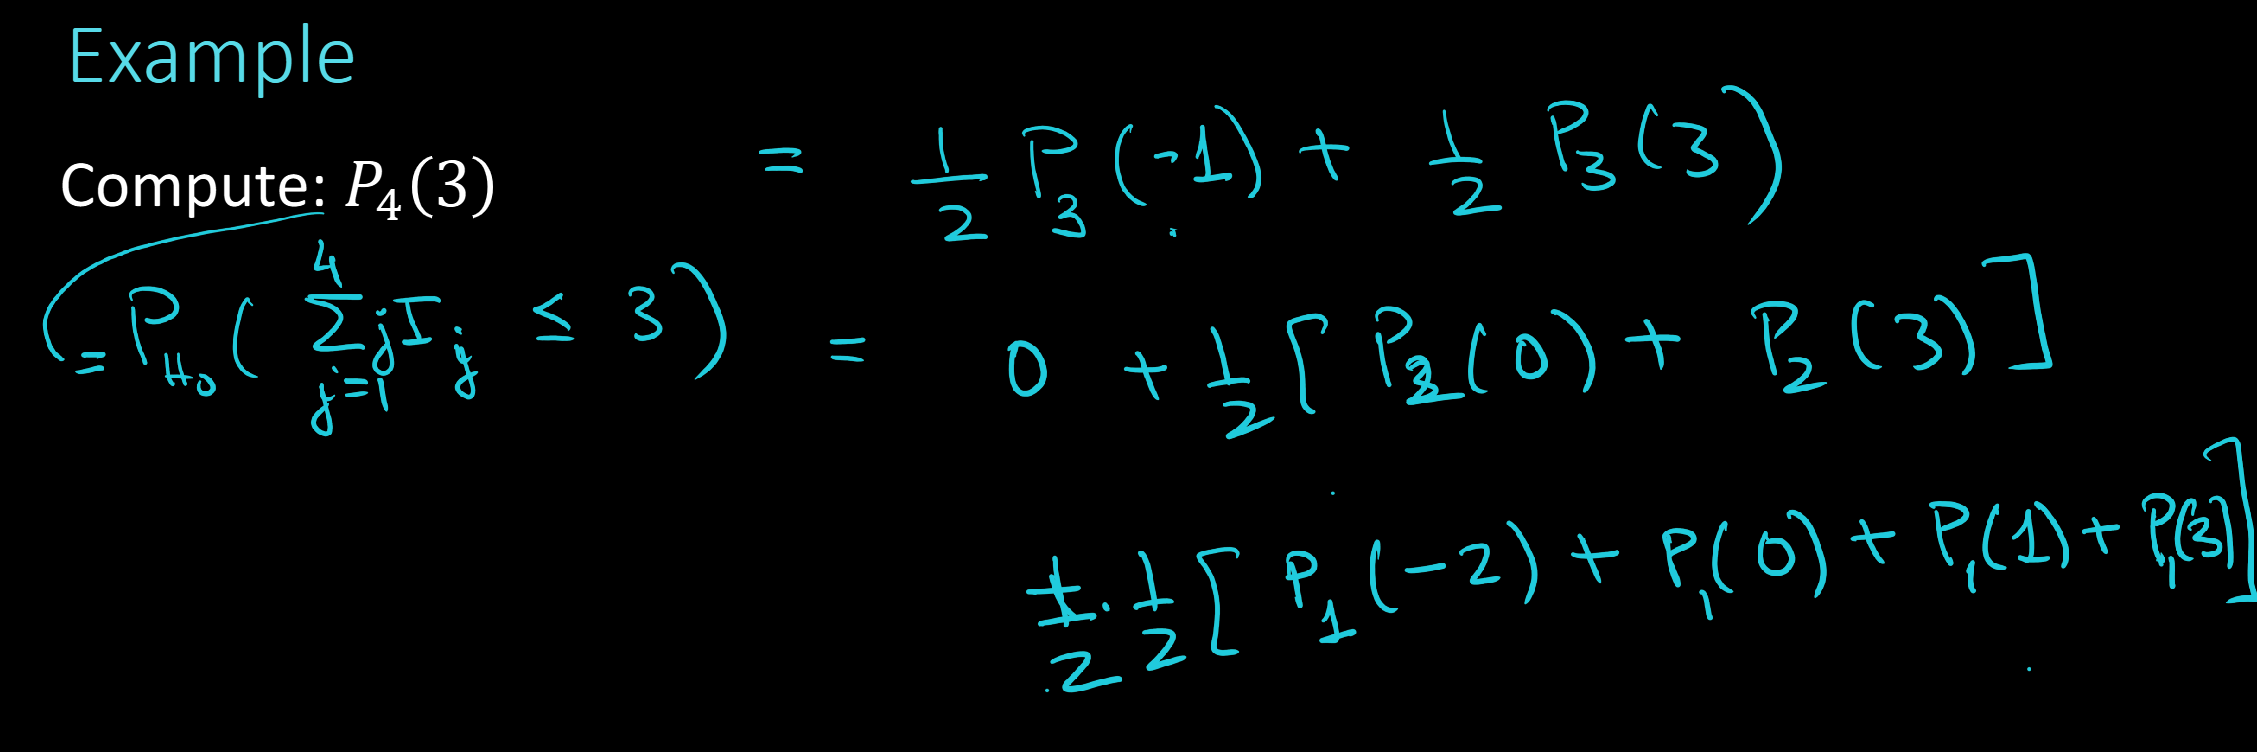 Example
Compute: P₄(3)
= P_{H₀}( ∑_{j=1}^{4} jI_j ≤ 3 )
= 1/2 P₃(-1) + 1/2 P₃(3)
= 0 + 1/2 [ P₂(0) + P₂(3) ]
1/2 · 1/2 [ P₁(-2) + P₁(0) + P₁(1) + P₁(3) ]